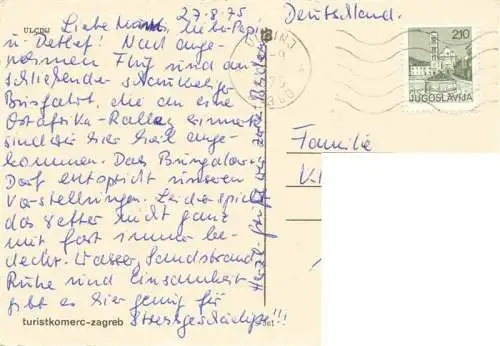 27.8.75
ULCINJ
Liebe Mami, lieber Papi
u. Detlef! Nach ange-
nehmem Flug und an-
schließender schaukeliger
Busfahrt, die an eine
Ostafrika-Ralley erinnert,
sind wir hier heil ange-
kommen. Das Bungalow-
Dorf entspricht unseren
Vorstellungen. Leider spielt
das Wetter nicht ganz
mit fast immer be-
deckt. Wasser, Sandstrand
Ruhe und Einsamkeit
gibt es hier genug für
Stressgeschädigte!!!
turistkomerc-zagreb
Deutschland.
ULCINJ
2,10
JUGOSLAVIJA
Familie